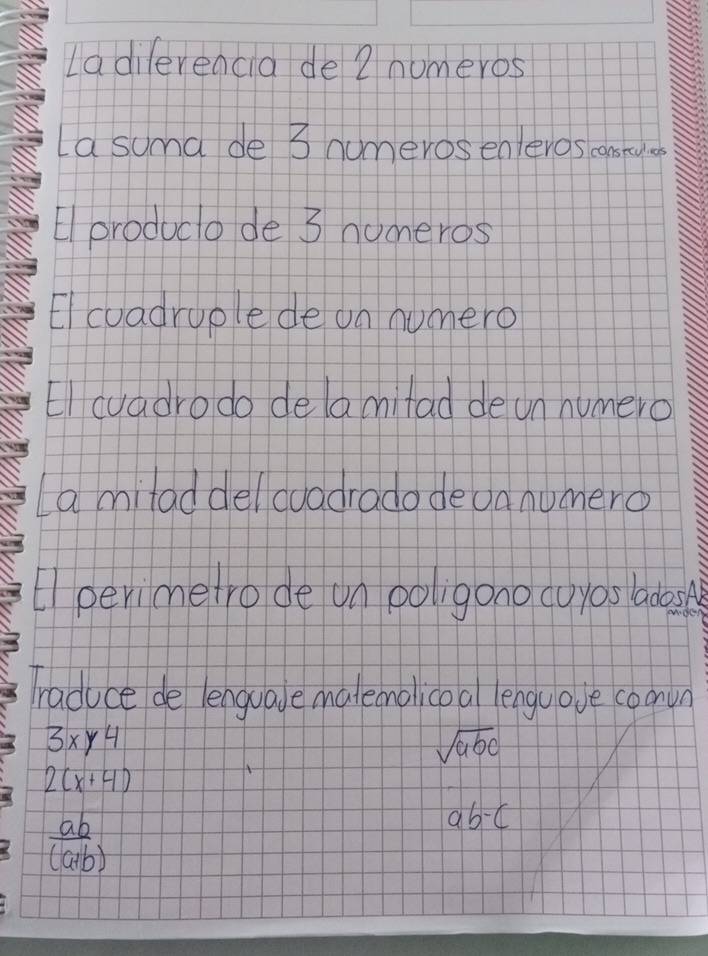 La diferencia de 2 numeros
La suma de 3 numeros enteros consecutivos
El producto de 3 numeros
El cuadruple de un numero
El cuadrado de la mitad de un numero
La mitad del cuadrado de un numero
El perimetro de un poligono cuyos lados miden
Traduce de lenguaje matematico al lenguaje comun
3xy4 √abc
2(x+4)
ab ab-c
(a+b)